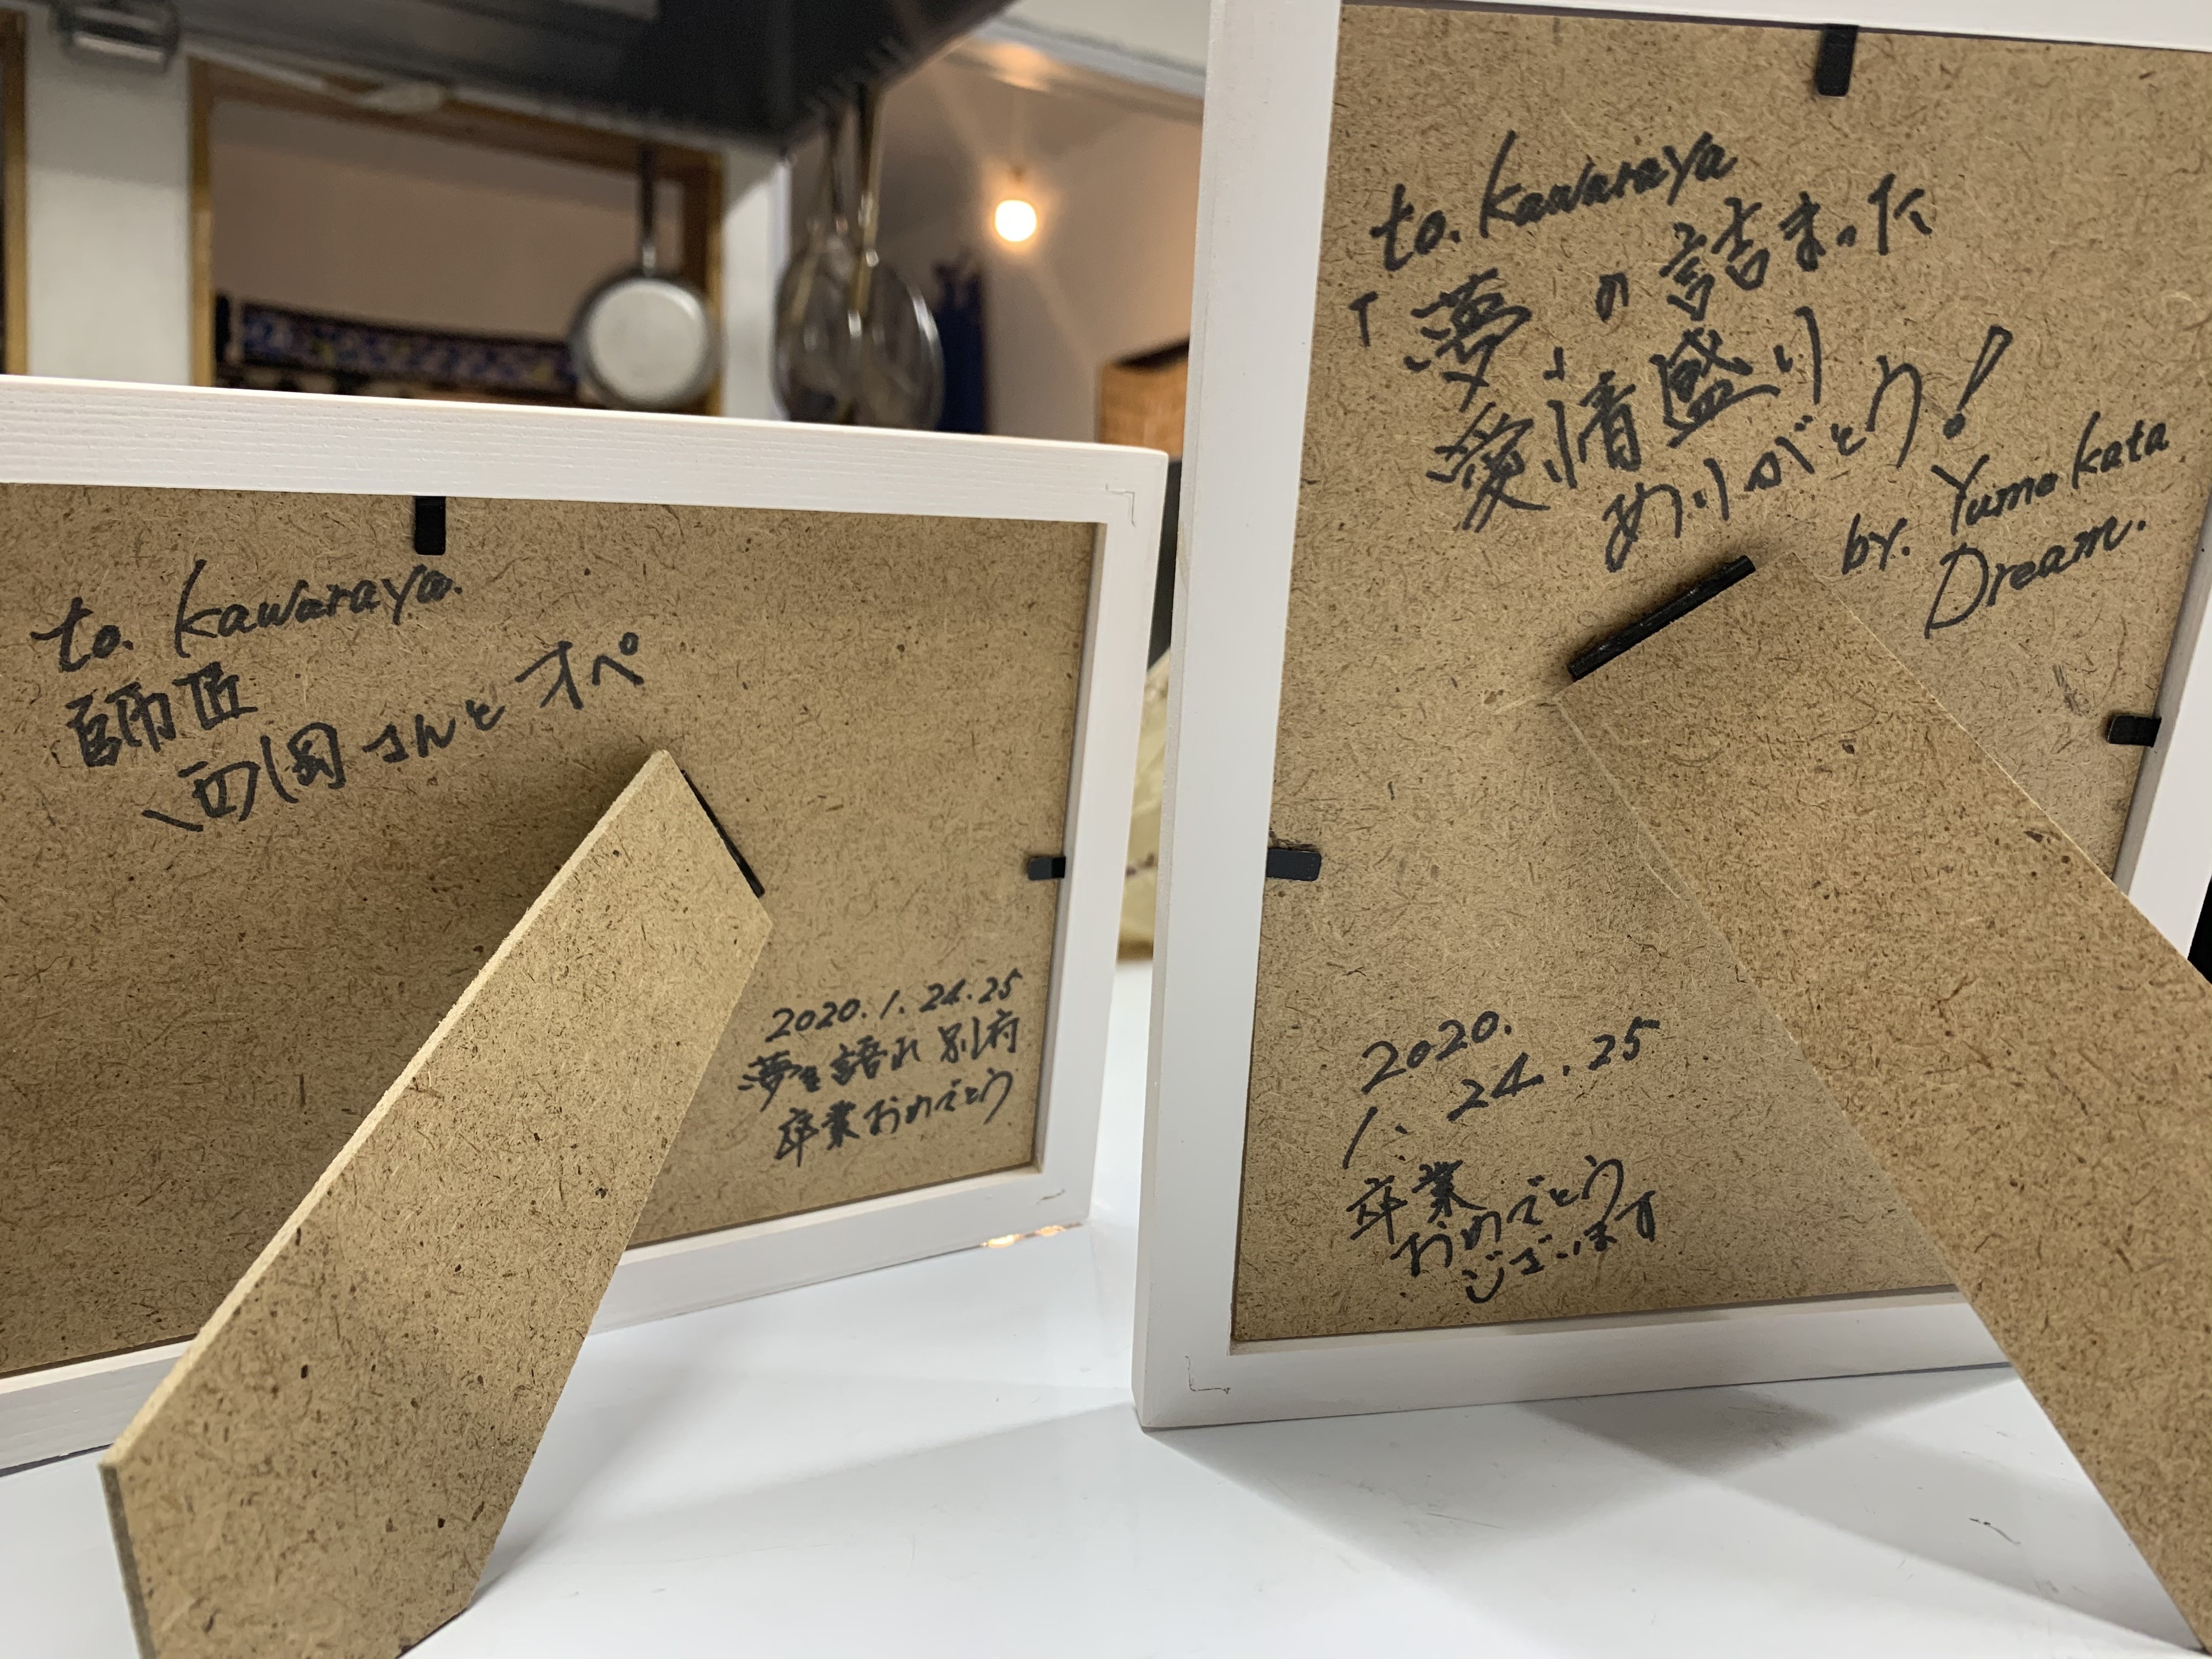 to. kawaraya.
師匠
西岡さんとオペ
2020.1.24.25
夢を語れ 別府
卒業おめでとう
to. kawaraya
「夢の詰まった
愛情盛り
ありがとう!
by. Yumekata
Dream.
2020.
1. 24.25
卒業
おめでとう
ございます